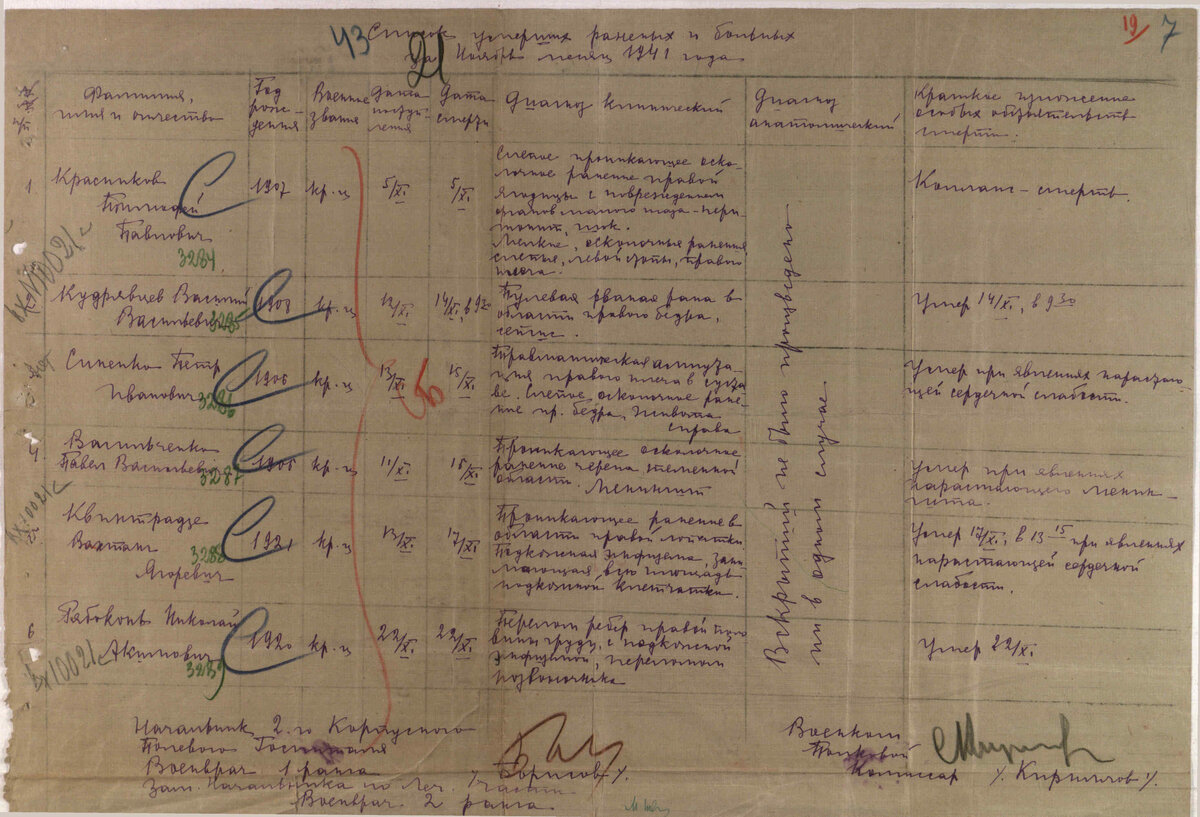 43 Список умерших раненых и больных
21
за Ноябрь месяц 1941 года
19 7
№№
Фамилия,
имя и отчество
Год
рож-
дения
Военное
звание
Дата
поступ-
ления
Дата
смерти
Диагноз клинический
Диагноз
анатомический
Краткое изложение
особых обстоятельств
смерти.
1
Красников
Тимофей
Павлович
3284
1907
кр-ц
5/XI.
5/XI.
Слепое проникающее оско-
лочное ранение правой
ягодицы с повреждением
органов малого таза - пери-
тонит, шок.
Мелкие, осколочные ранения
левой стопы, правого
плеча.
Коллапс - смерть.
Кудрявцев Василий
Васильевич 3285
1908
кр-ц
12/XI.
14/XI. в 9 30
Пулевая рваная рана в
области правого бедра,
сепсис.
Умер 14/XI. в 9 30
Синенко Петр
Иванович 3286
1906
кр-ц
13/XI.
15/XI.
Травматическая ампута-
ция правого плеча в суста-
ве. Слепое осколочное ране-
ние пр. бедра, живота
справа
Умер при явлениях нарастаю-
щей сердечной слабости.
4
Васильченко
Павел Васильевич
3287
1906
кр-ц
11/XI.
15/XI.
Проникающее осколочное
ранение черепа теменной
области. Менингит
Умер при явлениях
нарастающего менин-
гита.
Квинтрадзе
Вахтанг 3288
Ягоревич
1921
кр-ц
13/XI.
17/XI.
Проникающее ранение в
области правой лопатки.
Подкожная эмфизема, зани-
мающая всю площадь
подкожной клетчатки.
Умер 17/XI. в 13 15 при явлениях
нарастающей сердечной
слабости.
6
Рябоконь Николай
Акимович
3289
1920
кр-ц
22/XI.
22/XI.
Перелом ребер правой поло-
вины груди, с подкожной
эмфиземой, переломом
позвоночника
Умер 22/XI.
Вскрытий не было произведено
ни в одном случае.
Вх 10021с
Начальник 2-го Корпусного
Полевого Госпиталя
Военврач 1 ранга
Зам. Начальника по Леч. Части
Военврач 2 ранга
/Борисов/.
Военком
Полковой
Комиссар /Кириллов/.